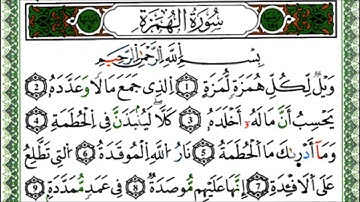 سُورَةُ الْهُمَزَةِ
بِسْمِ اللَّهِ الرَّحْمَٰنِ الرَّحِيمِ
وَيْلٌ لِكُلِّ هُمَزَةٍ لُمَزَةٍ ۝١ الَّذِى جَمَعَ مَالًا وَعَدَّدَهُ ۝٢
يَحْسَبُ أَنَّ مَالَهُ أَخْلَدَهُ ۝٣ كَلَّا لَيُنْبَذَنَّ فِى الْحُطَمَةِ ۝٤
وَمَا أَدْرَىٰكَ مَا الْحُطَمَةُ ۝٥ نَارُ اللَّهِ الْمُوقَدَةُ ۝٦ الَّتِى تَطَّلِعُ
عَلَى الْأَفْئِدَةِ ۝٧ إِنَّهَا عَلَيْهِمْ مُوصَدَةٌ ۝٨ فِى عَمَدٍ مُمَدَّدَةٍ ۝٩